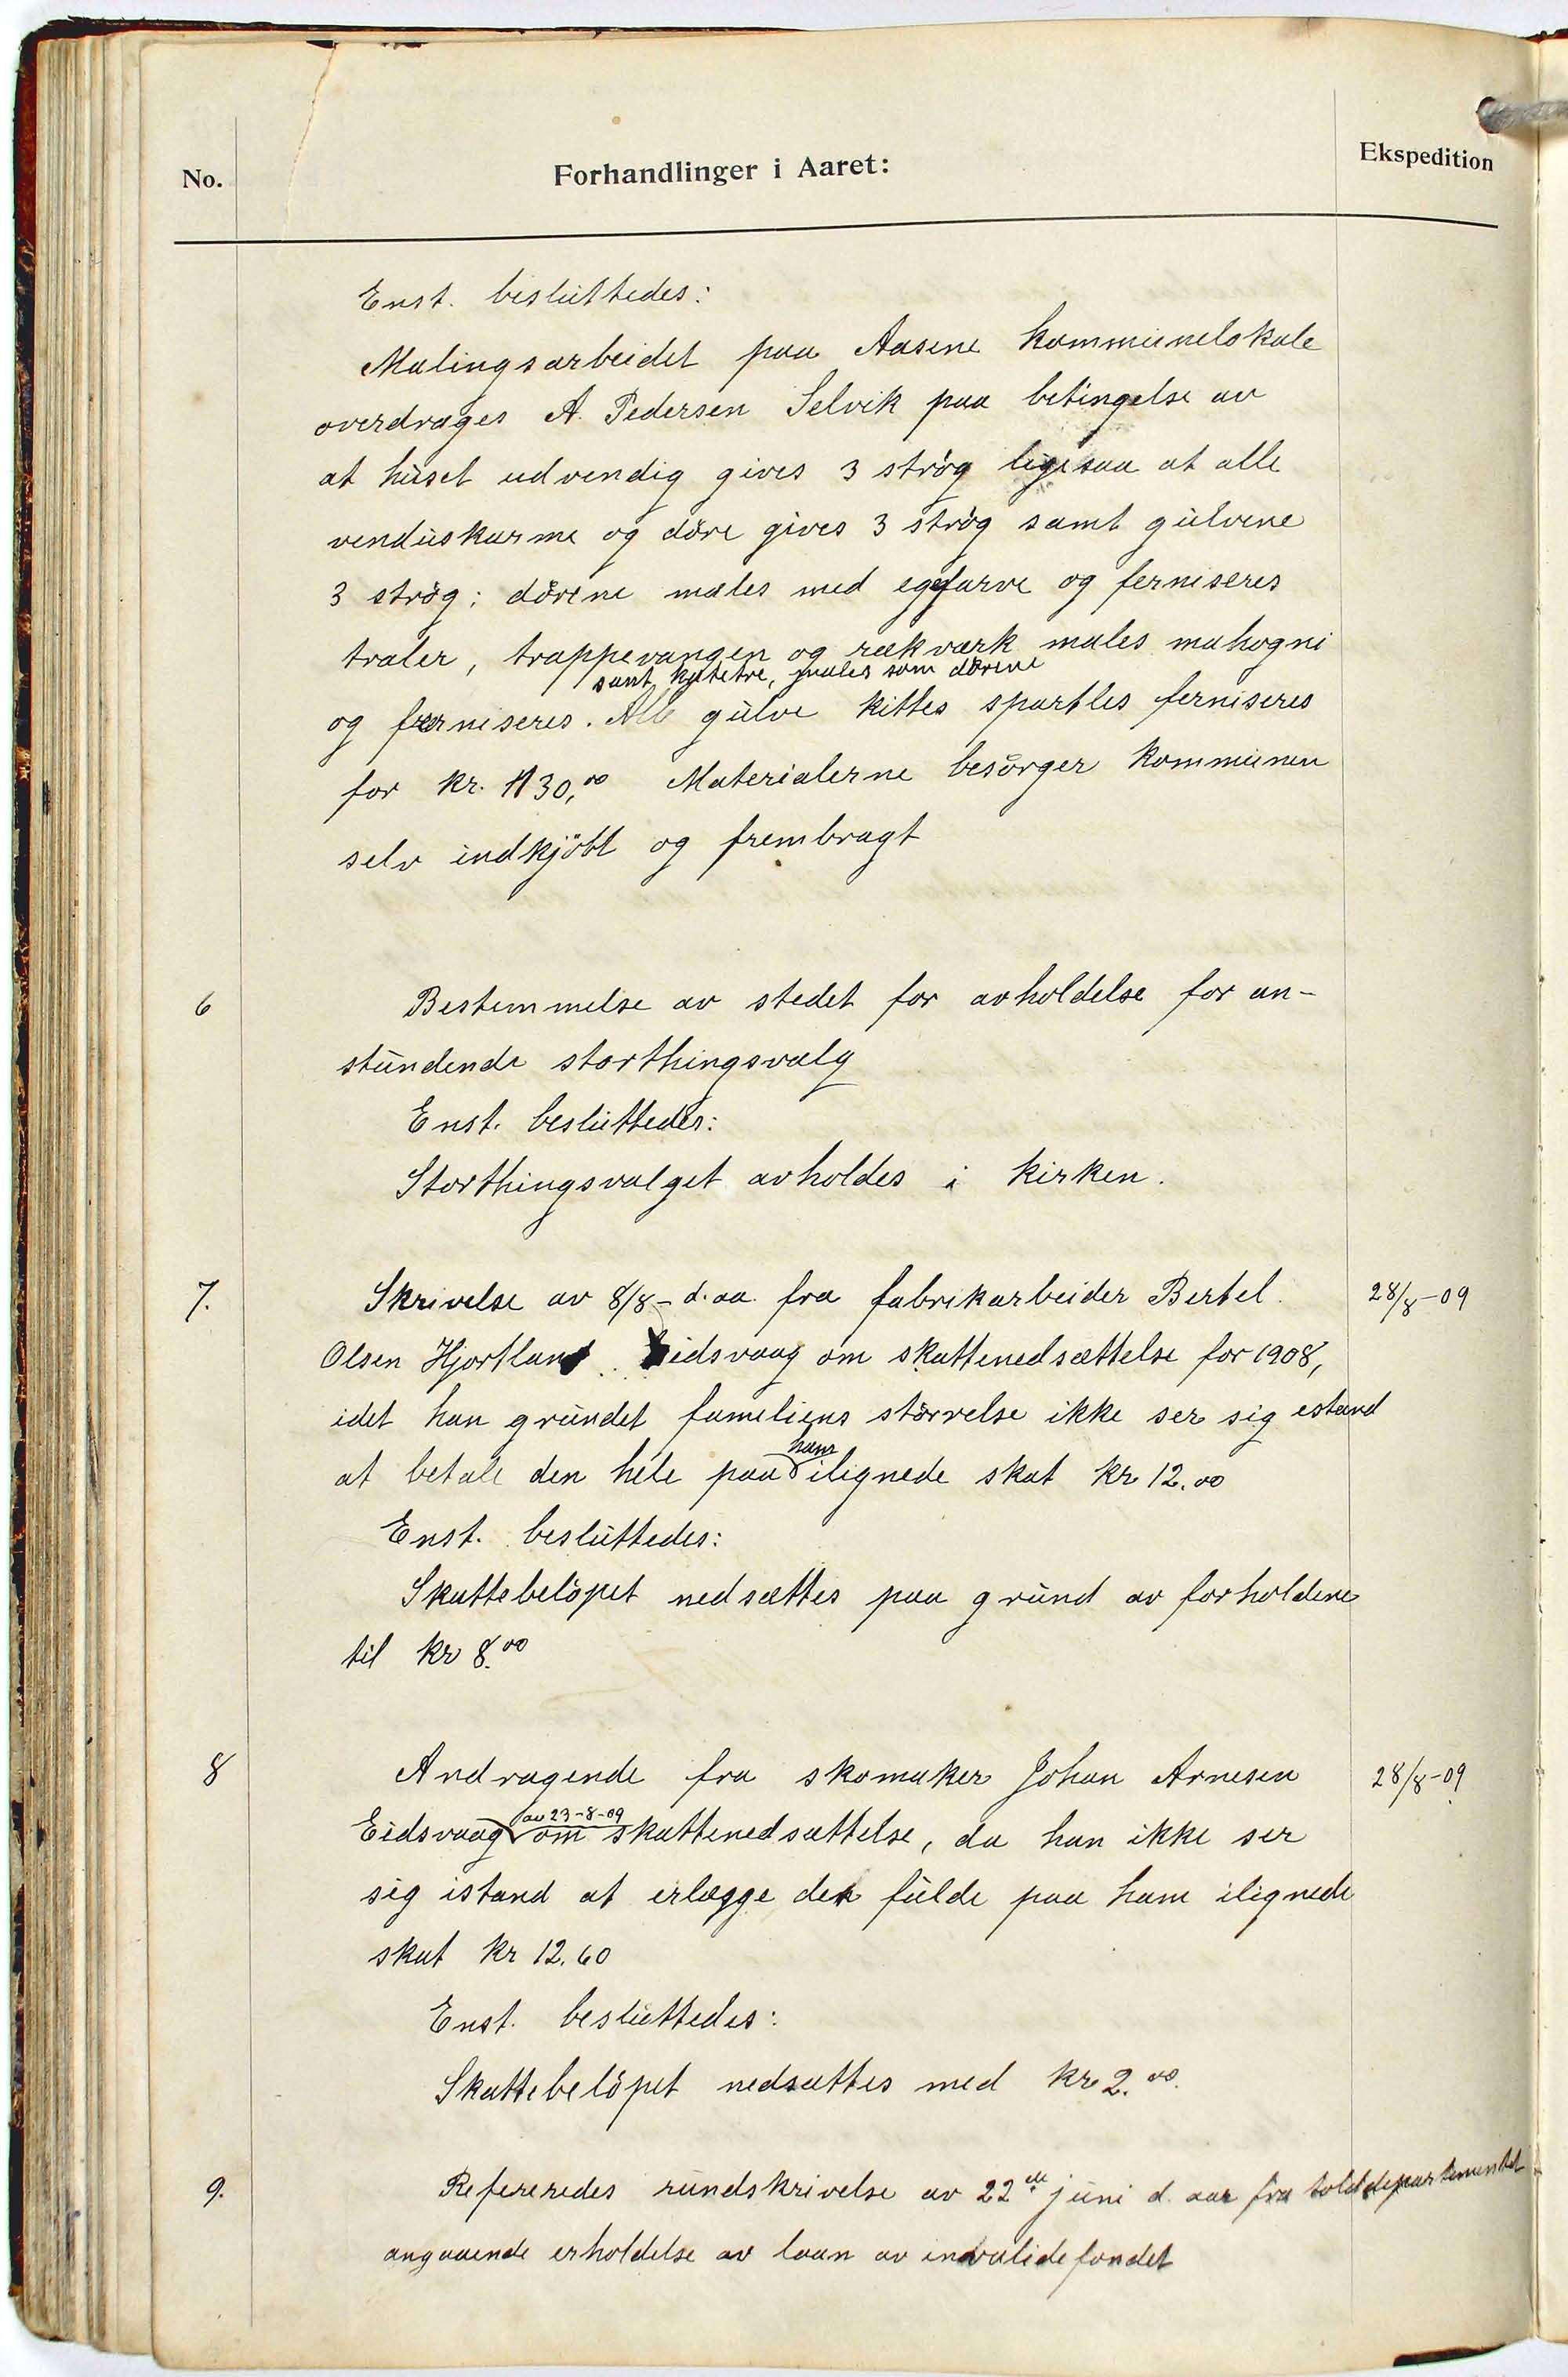 No.
Forhandlinger i Aaret:
Ekspedition
Enst. besluttedes:
Malingsarbeidet paa Aasene kommunelokale
overdrages A. Pedersen Selvik paa betingelse av
at huset udvendig gives 3 strøg ligesaa at alle
venduskarme og døre gives 3 strøg samt gulvene
3 strøg; dørene males med egefarve og ferniseres
traler, trappevangen og rækværk males mahogni
samt males som dørene
og ferniseres. Alle gulve kittes spartles ferniseres
for kr. 130,00 Materialerne besørger kommunen
selv indkjøbt og frembragt
6
Bestemmelse av stedet for avholdelse for an-
stundende storthingsvalg
Enst. besluttedes:
Storthingsvalget avholdes i kirken.
7.
Skrivelse av 8/8 - d. aa. fra fabrikarbeider Bertel
28/8-09
Olsen Hjortland Eidsvaag om skattenedsættelse for 1908,
idet han grundet fameliens størrelse ikke ser sig estand
ham
at betale den hele paa ilignede skat kr 12.00
Enst. besluttedes:
Skattebeløpet nedsættes paa grund av forholdene
til kr 8.00
8
Andragende fra skomaker Johan Arnesen
28/8-09
av 23-8-09
Eidsvaag om skattenedsættelse, da han ikke ser
sig istand at erlægge den fulde paa ham ilignede
skat kr 12.60
Enst. besluttedes:
Skattebeløpet nedsættes med kr 2.00.
9.
Refereredes rundskrivelse av 22de juni d. aar fra tolddepartementet
angaaende erholdelse av laan av invalidefondet